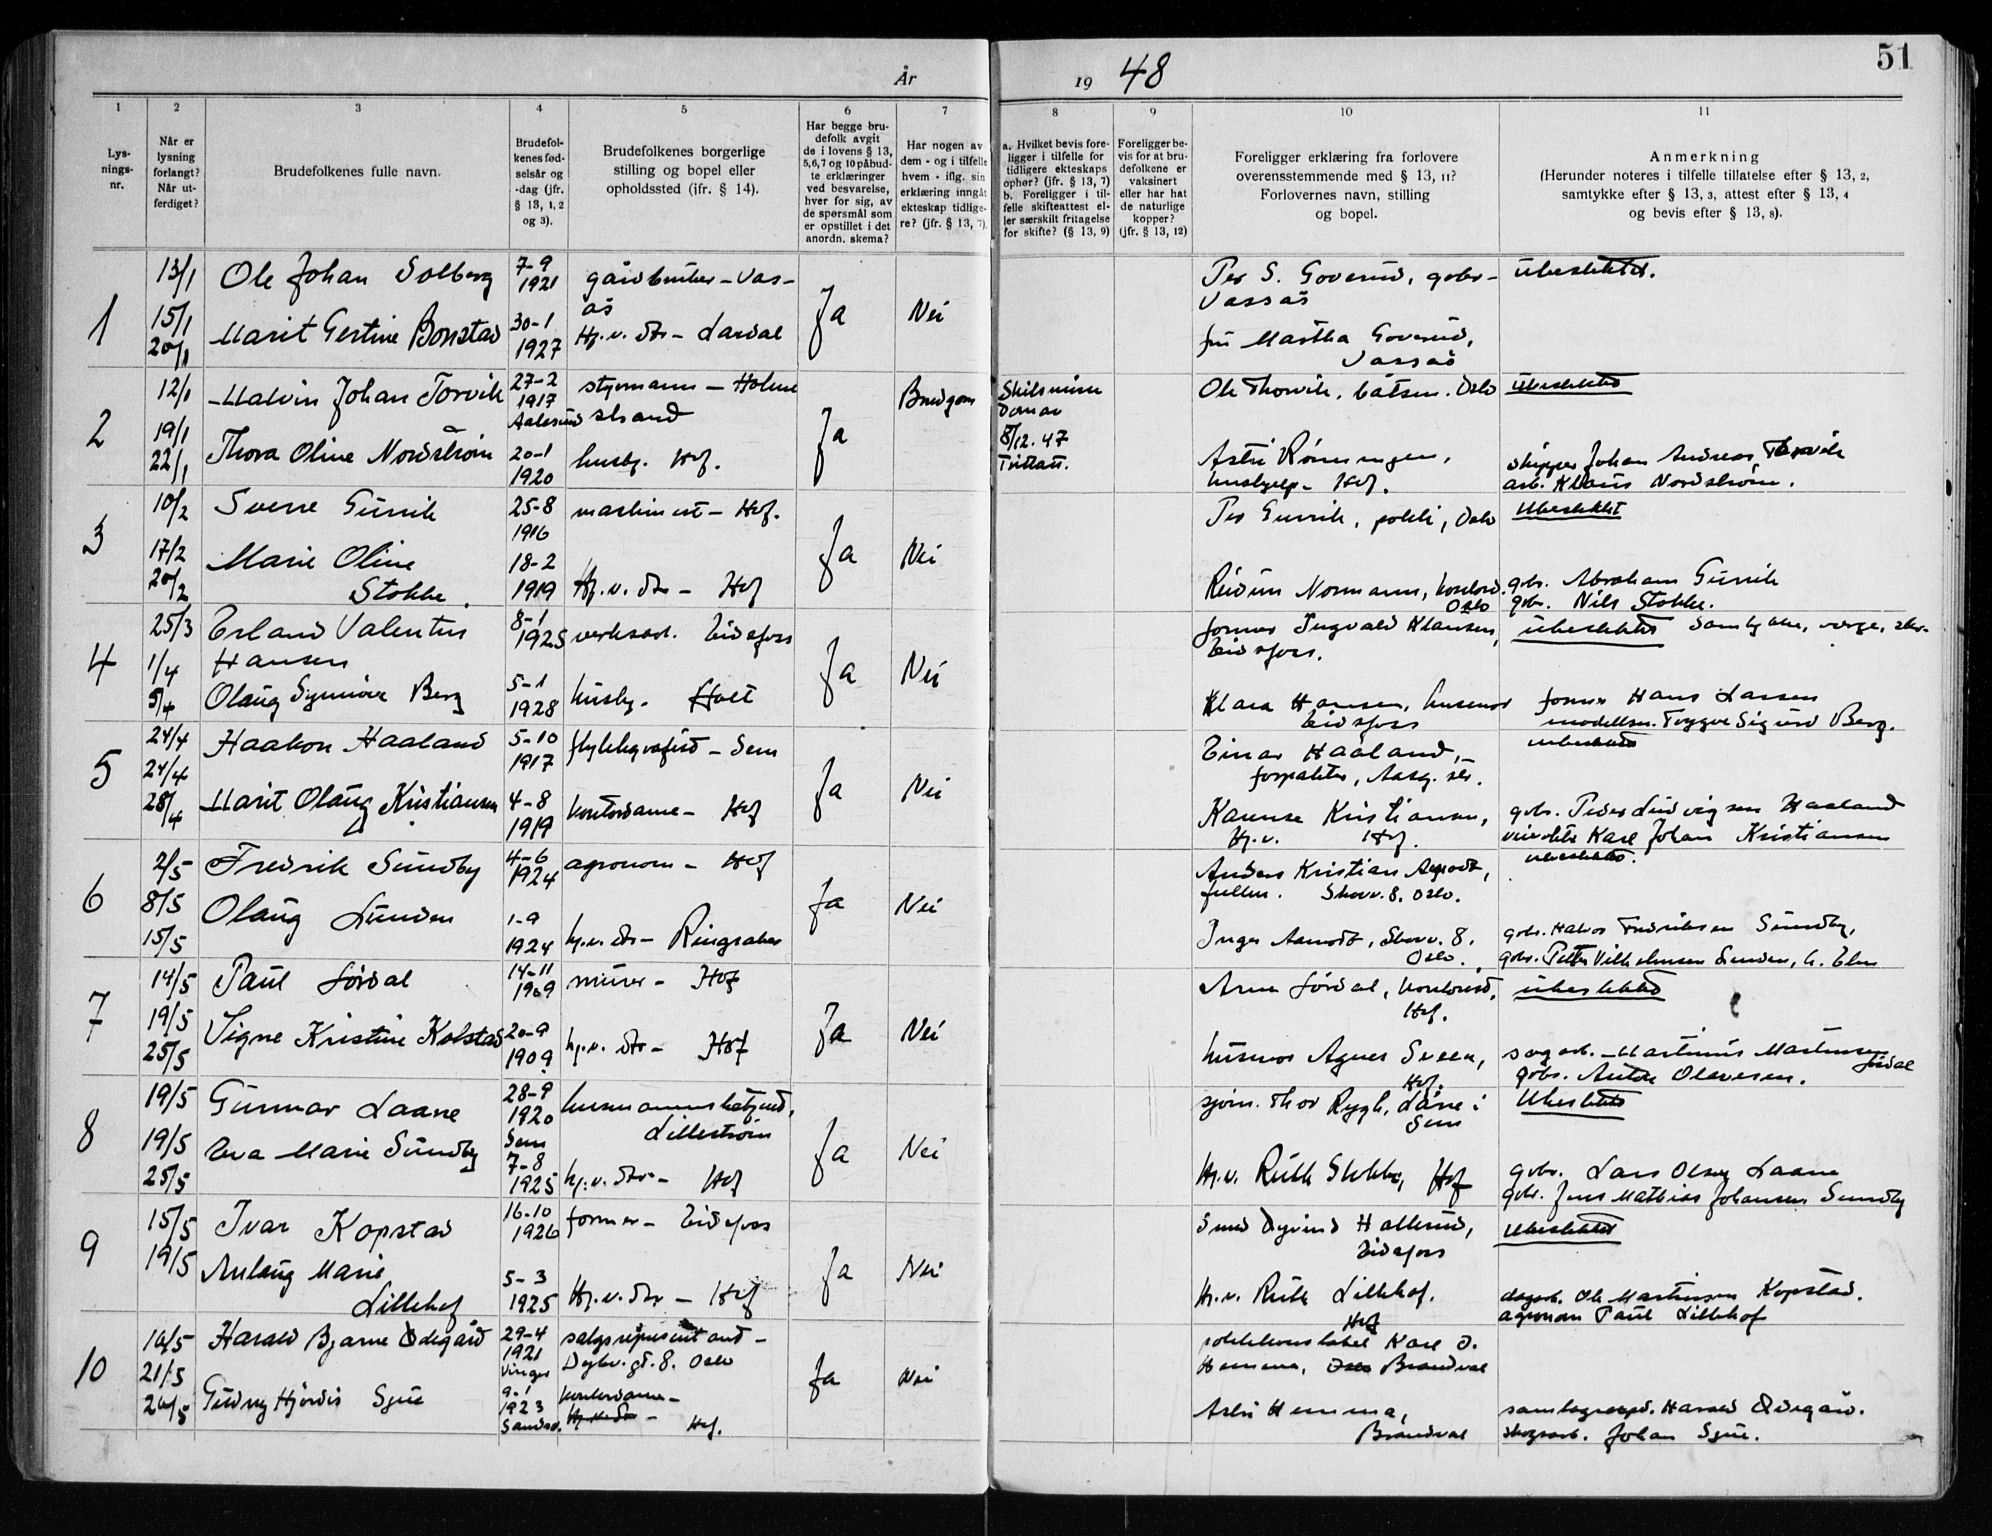 År
19 48
51
1
2
3
4
5
6
7
8
9
10
11
Lys-
nings-
nr.
Når er
lysning
forlangt?
Når ut-
ferdiget?
Brudefolkenes fulle navn.
Brudefol-
kenes fød-
selsår og
-dag (jfr.
§ 13, 1, 2
og 3).
Brudefolkenes borgerlige
stilling og bopel eller
opholdssted (ifr. § 14).
Har begge bru-
defolk avgit
de i lovens § 13,
5,6,7 og 10 påbud-
te erklæringer
ved besvarelse,
hver for sig, av
de spørsmål som
er opstillet i det
anordn. skema?
Har nogen av
dem - og i tilfelle
hvem - iflg. sin
erklæring inngåt
ekteskap tidlige-
re? (jfr. § 13, 7).
a. Hvilket bevis fore-
ligger i tilfelle for
tidligere ekteskaps
ophør? (jfr. § 13, 7)
b. Foreligger i til-
felle skifteattest el-
ler særskilt fritagelse
for skifte? (§ 13, 9)
Foreligger be-
vis for at bru-
defolkene er
vaksinert
eller har hat
de naturlige
kopper?
(jfr. § 13, 12)
Foreligger erklæring fra forlovere
overensstemmende med § 13, 11?
Forlovernes navn, stilling
og bopel.
Anmerkning
(Herunder noteres i tilfelle tillatelse efter § 13, 2,
samtykke efter § 13, 3, attest efter § 13, 4
og bevis efter § 13, 8).
1
13/1
15/1
20/1
Ole Johan Solberg
Marit Gertine Bonstad
7-9
1921
30-1
1927
gårdbruker - Vas-
ås
Hj.v. dtr - Lardal
Ja
Nei
Per S. Goverud, gbr -
Vassås
fru Martha Goverud,
Vassås
Ubeslektet.
2
12/1
19/1
22/1
Malvin Johan Torvik
Thora Oline Nordstrøm
27-2
1917
Aalesund
20-1
1920
styrmann - Holme
strand
husbg. Hof.
Ja
Brudgom
Skilsmisse
8/12. 47
Ole Thorvik, båtsm. Oslo
Astri Rønningen,
hushjelp - Hof.
Ubeslektet
skipper Johan Andreas Thorvik
arb. Klaus Nordstrøm.
3
10/2
17/2
20/2
Sverre Gurrik
Marie Oline
Stokke.
25-8
1916
18-2
1919
maskinist - Hof.
Hj.v. dtr - Hof
Ja
Nei
Per Gurrik, politi, Oslo
Reidun Normann, kontord.
Oslo
Ubeslektet
gbr. Abraham Gurrik
gbr. Nils Stokke.
4
25/3
1/4
5/4
Erland Valentin
Hansen
Olaug Synnøve Berg
8-1
1925
5-1
1928
verksarb. Eidsfoss
husbg. - Holt
Ja
Nei
former Ingvald Klausen,
Eidsfoss.
Klara Hansen, husmor
Eidsfoss
ubeslektet
former Hans Larsen
modellsn. Trygve Sigurd Berg.
5
24/4
24/4
28/4
Haakon Haaland
Marit Olaug Kristiansen
5-10
1917
4-8
1919
- Sem
kontordame - Hof
Ja
Nei
Einar Haaland,
forpakter,
Karense Kristiansen,
Hj.v. Hof.
ubeslektet
gbr. Peder Ludvigsen Haaland
Karl Johan Kristiansen
6
2/5
8/5
15/5
Fredrik Sundby
Olaug Lunden
4-6
1924
1-9
1924
agronom - Hof
hj.v. dtr - Ringsaker
Ja
Nei
Anders Kristian
Skovv. 8. Oslo.
Inger Aamodt, Skovv. 8.
Oslo.
ubeslektet.
gbr. Halvor Fredriksen Sundby,
gbr. Petter Vilhelmsen Lunden,
7
14/5
19/5
25/5
Paul Jordal
Signe Kristine Kolstad
14-11
1909
20-9
1909
murer - Hof
hj.v. dtr - Hof
Ja
Nei
Arne Jordal,
Hof.
husmor Agnes Sveen,
Hof.
ubeslektet
sagarb. Martinus Martinsen
Jordal
gbr. Anton Olavesen.
8
19/5
19/5
25/5
Gunnar Laane
Eva Marie Sundby
28-9
1920
Sem
7-8
1925
Lillestrøm
hj.v. dtr - Hof
Ja
Nei
sjøm. Thor Rygh, Låne i
Sem
Hj.v. Ruth Stokke, Hof
Ubeslektet
gbr. Lars Olsen Laane
gbr. Jens Mathias Johansen Sundby
9
15/5
19/5
Ivar Kopstad
Anlaug Marie
Lillehof
16-10
1926
5-3
1925
former - Eidsfoss
Hj.v. dtr - Hof
Ja
Nei
smed Øyvind Hallerud,
Eidsfoss
Hj.v. Ruth Lillehof.
Hof
Ubeslektet
dagarb. Ole Martinsen Kopstad.
agronom Paul Lillehof
10
16/5
21/5
26/5
Harald Bjarne Ødegård
Gudny Hjørdis Sjue
29-4
1921
Vinger
9-1
1923
Sandsv.
salgsrepresentant -
Dybv. gt. 8. Oslo
kontordame -
Hj.v. dtr -
Hof.
Ja
Nei
politikonstabel Karl O.
Hemma, Oslo Brandval
Astri Hemma,
Brandval
Harald Ødegård.
skogsarb. Johan Sjue.